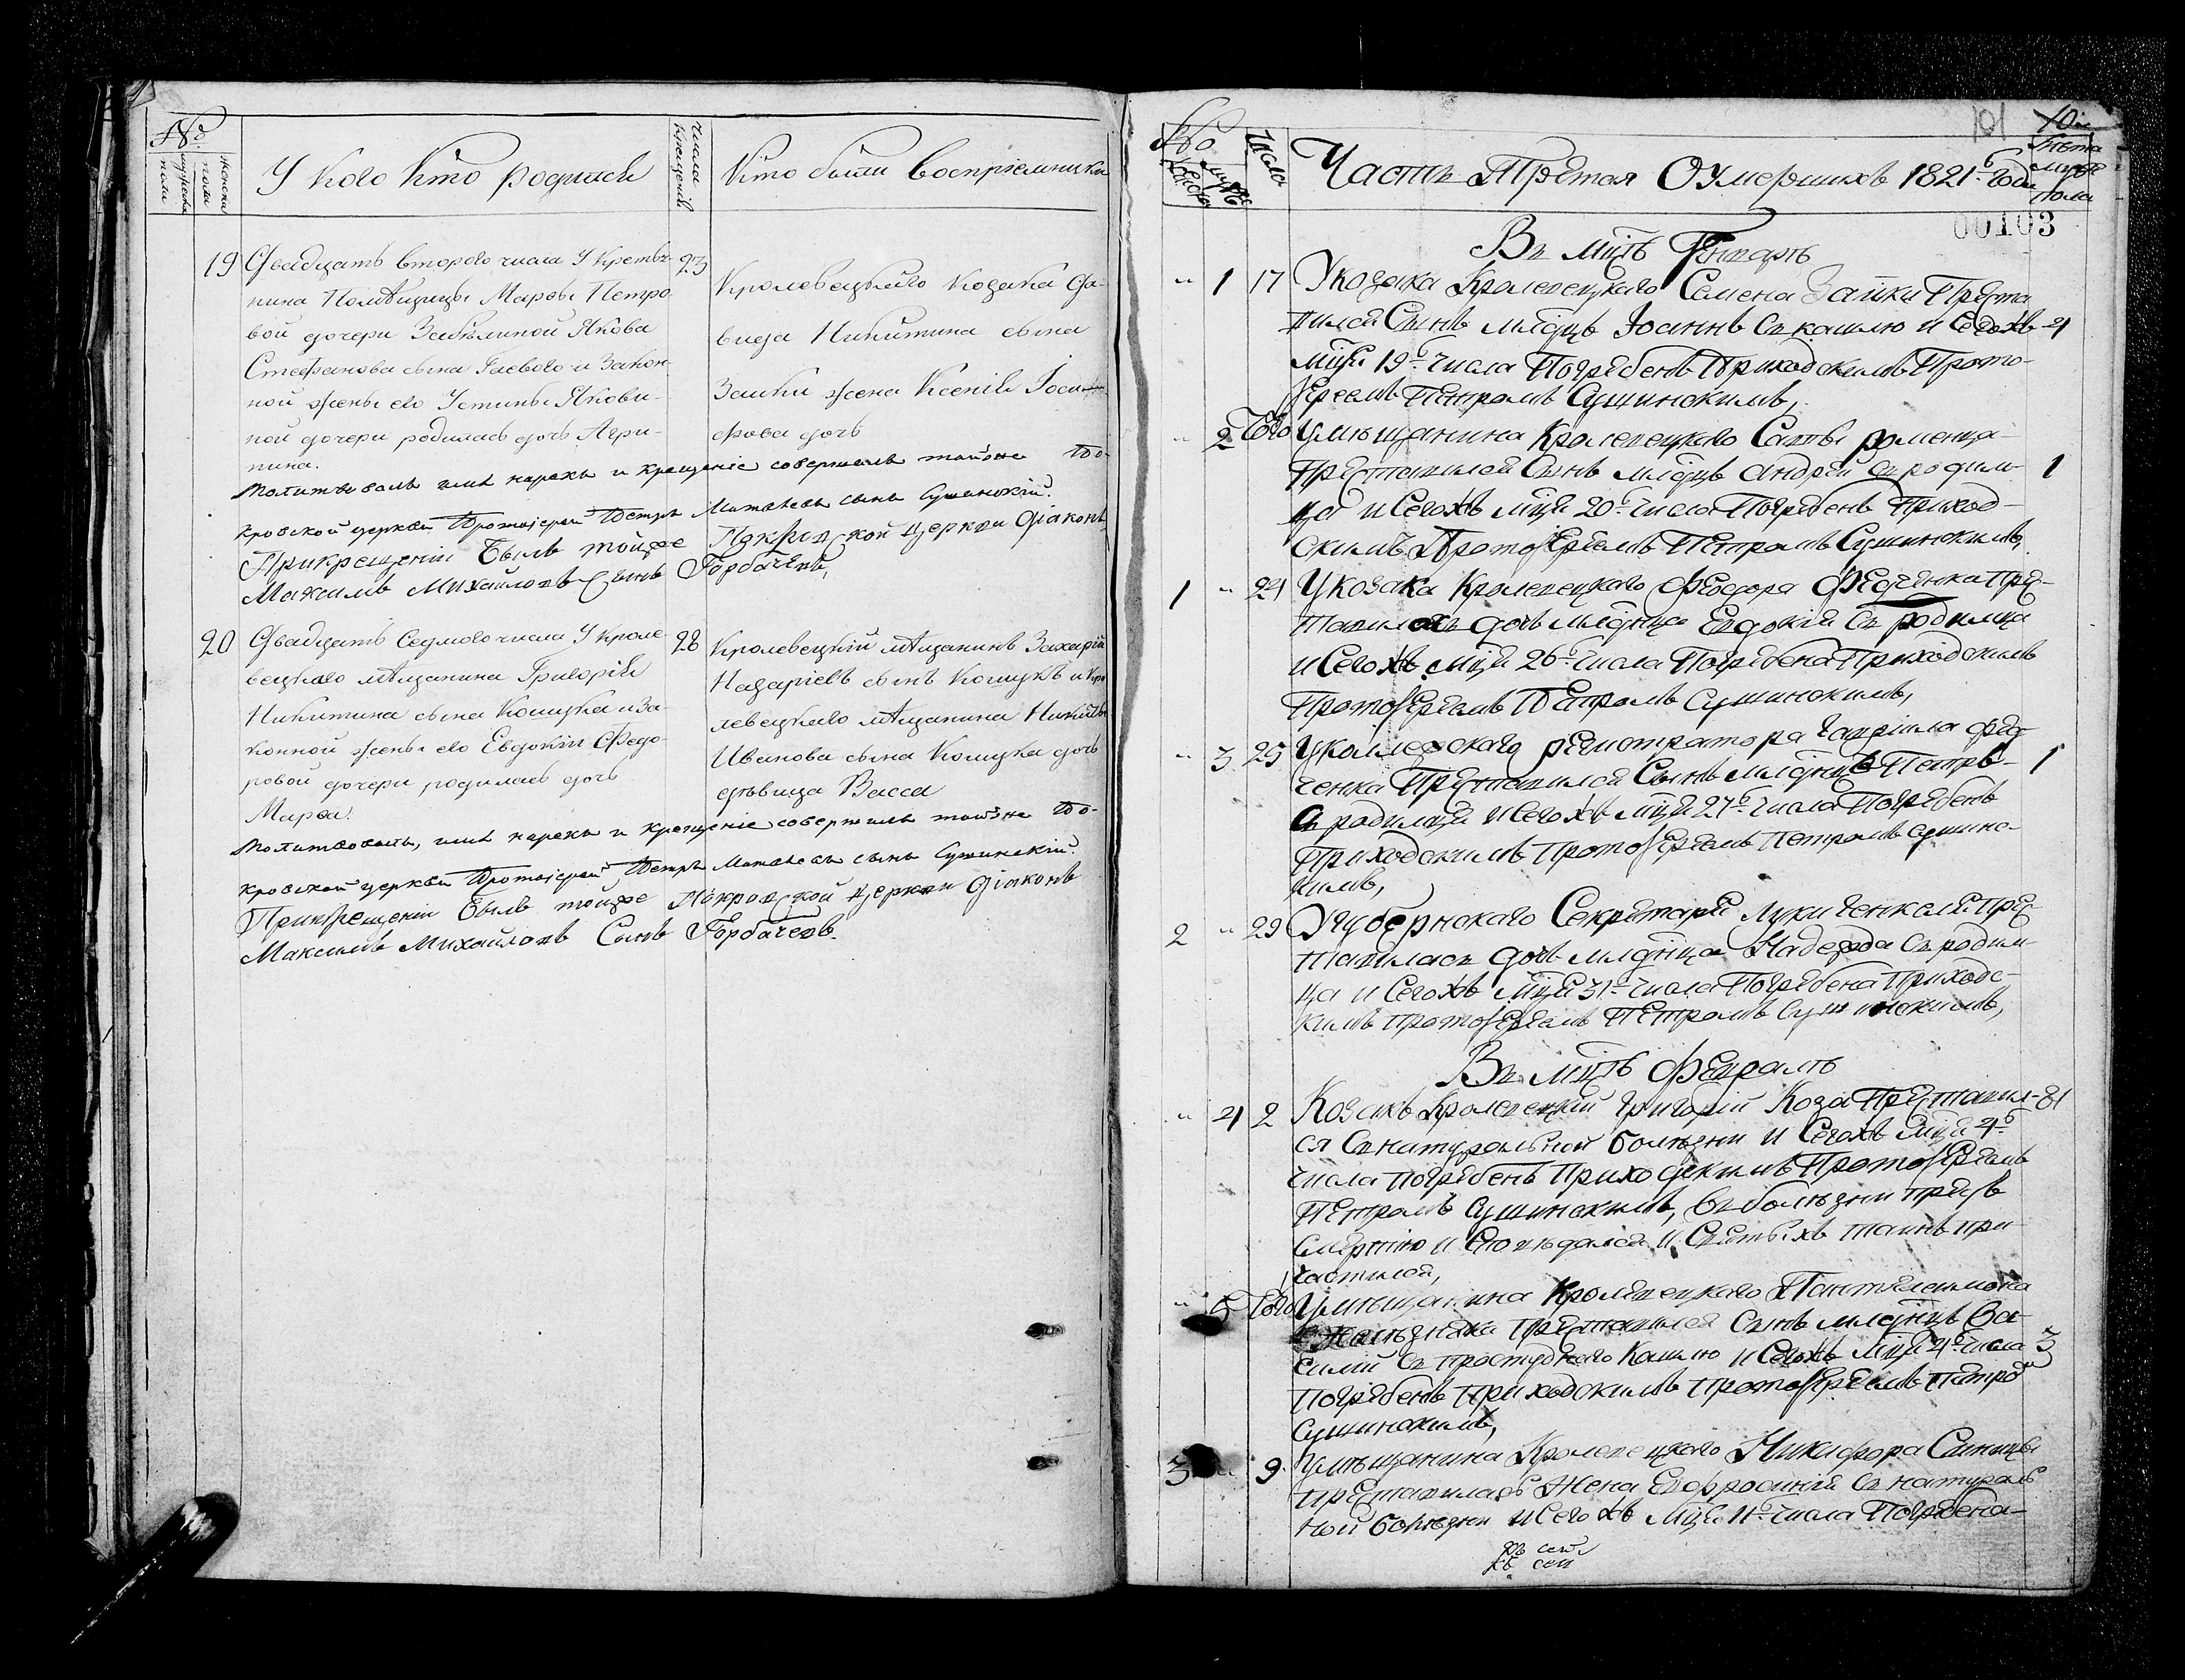 №
мужеска пола
женска пола
У кого кто родился
Числа крещенія
Кто были воспріемники
19
Двадцать второго числа У крестья-
нина Помѣщицы Марѳы Петро-
вой дочери Якова
Стефанова сына Гаевого и Закон-
ной жены его Устины Якови-
ной дочери родилась дочь Агри-
пина.
23
Кролевецкого Козака Да-
вида Никитина сына
Заики жена Ксенія Іоси-
фова дочь
Молитвовалъ имя нарекъ и крещеніе совершилъ тойже По-
кровской церкви Протоіерей Петръ Матвѣевъ сынъ Сушинскій.
При крещеніи былъ тойже Покровской церкви Діаконъ
Максимъ Михайловъ Сынъ Горбачевъ,
20
Двадцать Седмого числа У Кроле-
вецкого мѣщанина Григорія
Никитина сына Кошука и За-
конной жены его Евдокіи Федо-
ровой дочери родилась дочь
Марѳа.
28
Кролевецкій мѣщанинъ Захарій
Назаріевъ сынъ Кошукъ и Кро
левецкого мѣщанина Никиты
Иванова сына Кошука дочь
дѣвица Васса
Молитвовалъ, имя нарекъ и крещеніе совершилъ тойже По-
кровской церкви Протоіерей Петръ Матвѣевъ сынъ Сушинскій.
При крещеніи былъ тойже Покровской церкви Діаконъ
Максимъ Михайловъ Сынъ Горбачевъ.
101
Числа
Часть Третая О Умершихъ 1821го Года
Лѣта
пола
00103
Въ мцѣ Генварѣ
1 17 У козака Кролевецкаго Семена Заики Преста
вился Сынъ младнцъ Іоаннъ Съ кашлю и Сегожъ 4
мця 19го числа Погребенъ Приходскимъ Прото-
іереемъ Петромъ Сушинскимъ,
2 Того У мѣщанина Кролевецкаго Саввы роменца
Преставился Сынъ младнцъ Андрей Съ родим- 1
ца и Сегожъ мця 20го числа Погребенъ Приход-
скимъ Протоіереемъ Петромъ Сушинскимъ,
1 24 У козака Кролевецкаго Феодора Феденка Пре-
ставилась дочь младнца Евдокія Съ родимца
и Сегожъ мця 26го числа Погребена Приходскимъ
Протоіереемъ Петромъ Сушинскимъ,
3 25 У коллежского регистратора Гавріила Фед-
ченка Преставился Сынъ младнцъ Петръ 1
Съ родимця и Сегожъ мця 27го числа Погребенъ
Приходскимъ Протоіереемъ Петромъ Сушинс-
кимъ,
2 29 У губернского Секретаря Луки Пре-
ставилась дочь младнца Надежда Съ родим-
ца и Сегожъ мця 31го числа Погребена Приходс-
кимъ Протоіереемъ Петромъ Сушинскимъ,
Въ мцѣ Февралѣ
4 2 Козакъ Кролевецкій Григорій Коза Преставил- 81
ся Съ натуральной болѣзни и Сегожъ мця 4го
числа Погребенъ Приходскимъ Протоіереемъ
Петромъ Сушинскимъ, въ болѣзни предъ
Смертію исповѣдался и Святыхъ таинъ при-
частился,
5 Того У мѣщанина Кролевецкого Пантелеимона
Преставился Сынъ младнцъ Ва-
силій Съ простудного Кашлю и Сегожъ мця 4го числа 3
Погребенъ Приходскимъ Протоіереемъ Петром
Сушинскимъ,
3 9 У мѣщанина Кролевецкого Никифора Синицы
Преставилась Жена Евфросинія Съ натураль
ной болѣзни и Сегожъ мця 11го числа Погребена